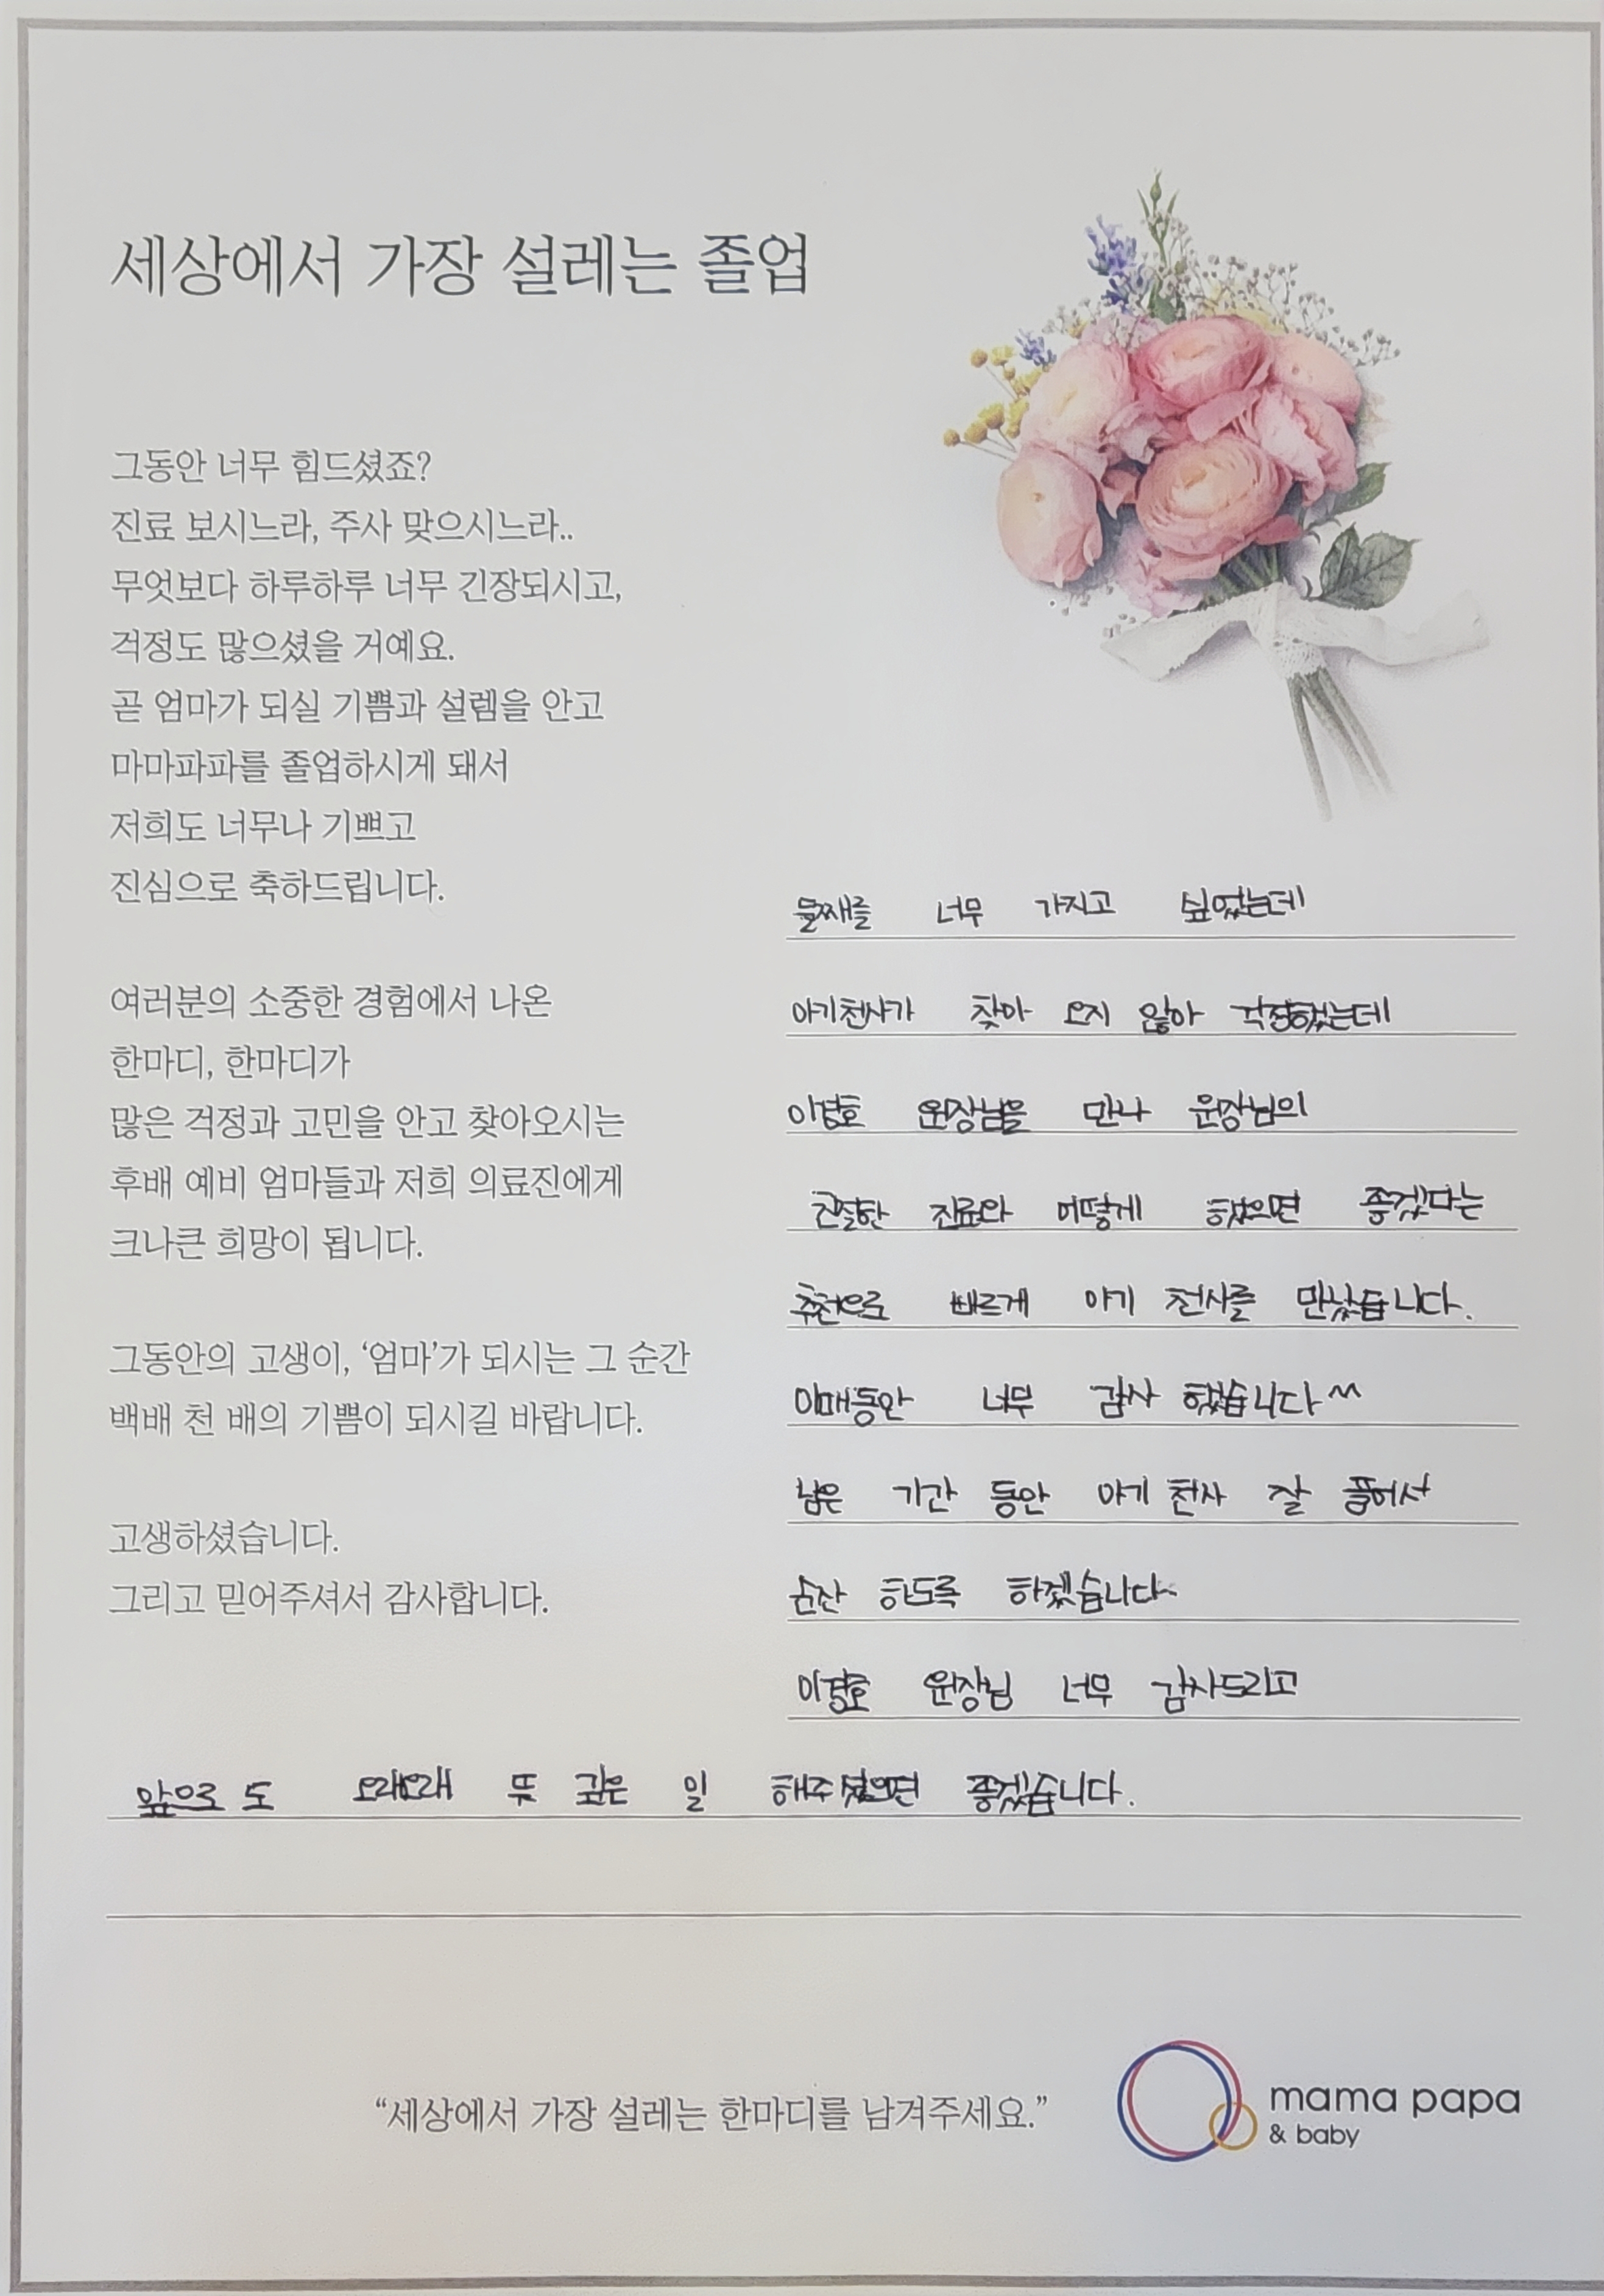 세상에서 가장 설레는 졸업
그동안 너무 힘드셨죠?
진료 보시느라, 주사 맞으시느라..
무엇보다 하루하루 너무 긴장되시고,
걱정도 많으셨을 거예요.
곧 엄마가 되실 기쁨과 설렘을 안고
마마파파를 졸업하시게 돼서
저희도 너무나 기쁘고
진심으로 축하드립니다.
여러분의 소중한 경험에서 나온
한마디, 한마디가
많은 걱정과 고민을 안고 찾아오시는
후배 예비 엄마들과 저희 의료진에게
크나큰 희망이 됩니다.
그동안의 고생이, ‘엄마’가 되시는 그 순간
백배 천 배의 기쁨이 되시길 바랍니다.
고생하셨습니다.
그리고 믿어주셔서 감사합니다.
둘째를 너무 가지고 싶었는데
아기천사가 찾아 오지 않아 걱정했는데
이경호 원장님을 만나 원장님의
친절한 진료와 어떻게 했으면 좋겠다는
추천으로 빠르게 아기 천사를 만났습니다.
이때동안 너무 감사 했습니다^^
남은 기간 동안 아기 천사 잘 품어서
순산 하도록 하겠습니다.
이경호 원장님 너무 감사드리고
앞으로 도 오래오래 뜻 깊은 일 해주셨으면 좋겠습니다.
“세상에서 가장 설레는 한마디를 남겨주세요.”
mama papa
& baby